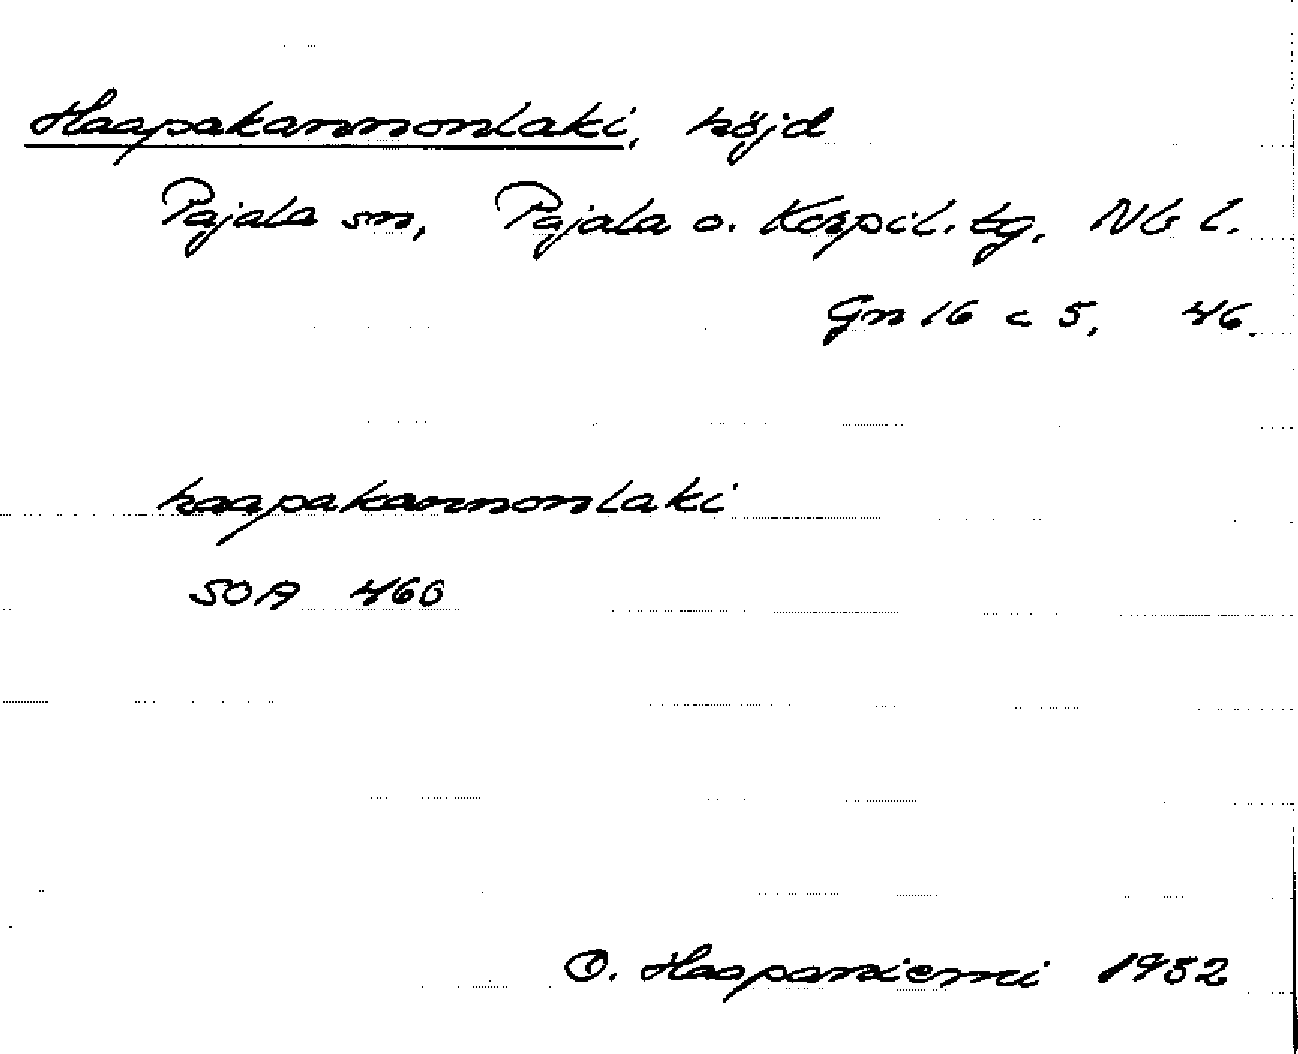 Haapakannonlaki, höjd
Pajala sn, Pajala o. Korpil. tg. Nb l.
Gn 16 c 5, 46.
haapakannonlaki
SOA 460
O. Haapaniemi 1952